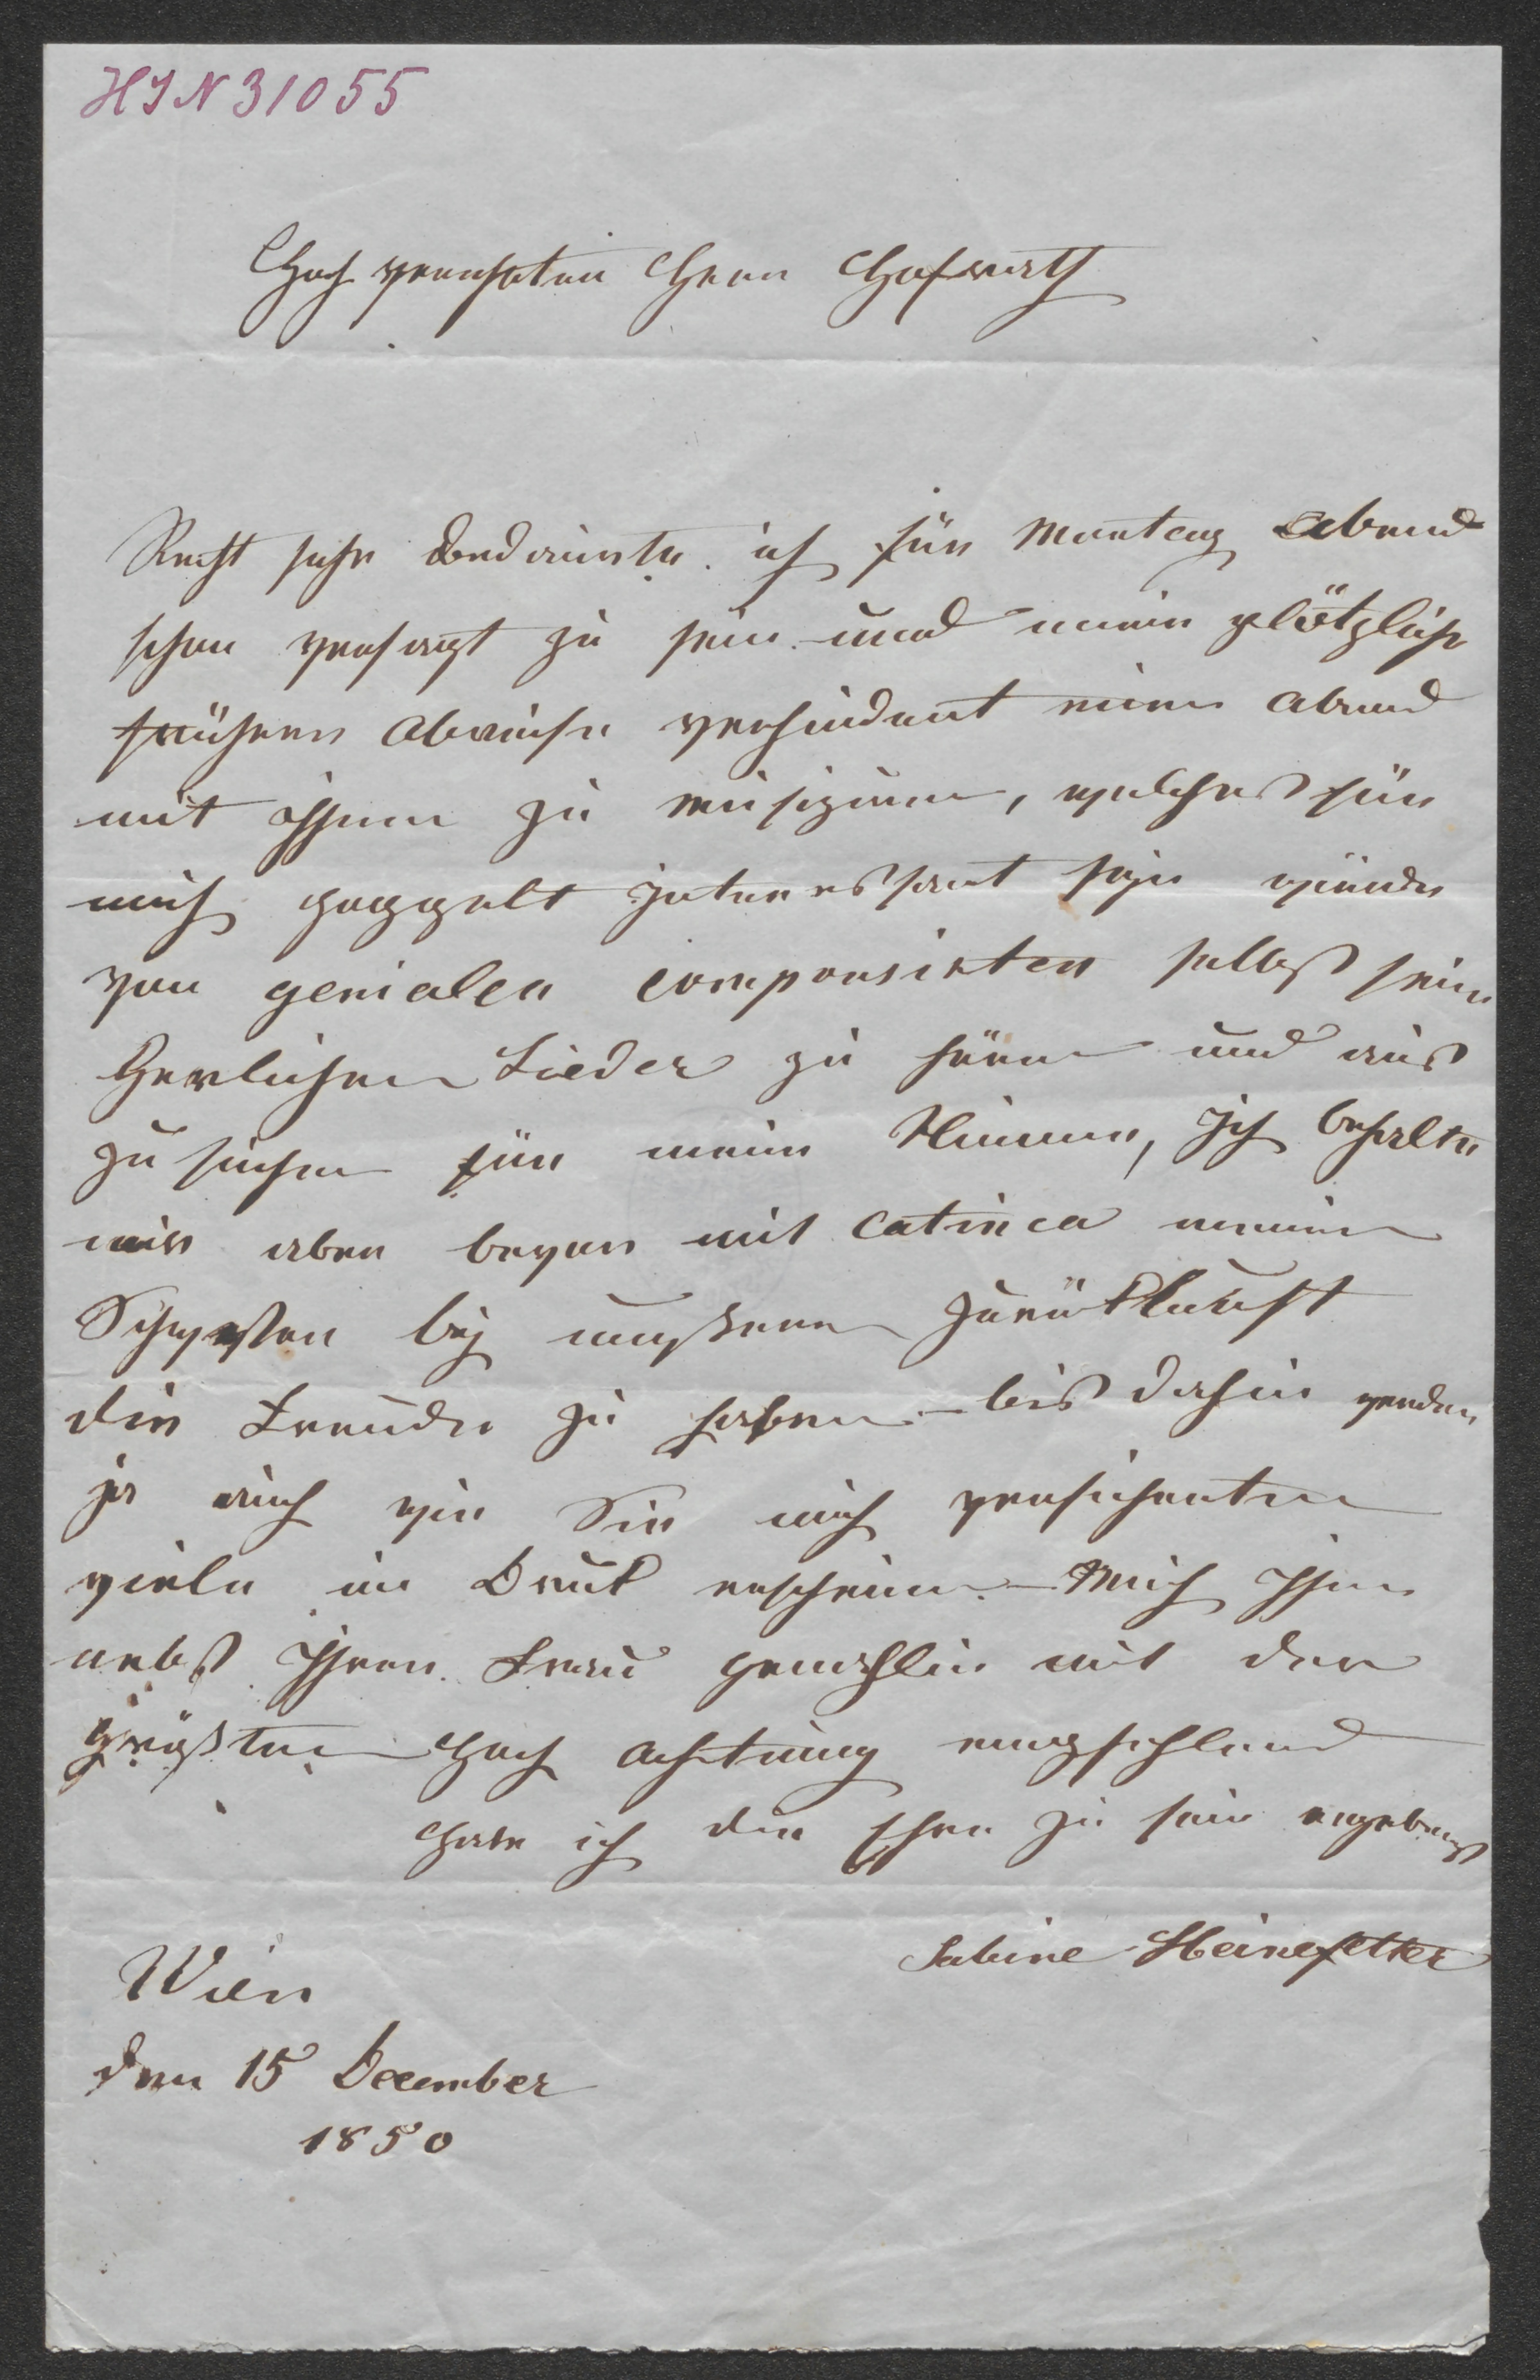 HIN 31055
Hoch verehrten Herrn Hofrath
Recht sehr bedauerte ich für Montag Abend
schon versagt zu sein und meine plötzliche
frühere Abreise verhindert einen Abend
mit Ihnen zu musiziren, welches für
mich doppelt interessant seyn würde
von genialen Componisten selbst seine
Herlichen Lieder zu hören und aus
zu suchen für meine Stimme, Ich behalte
mir aber bevor mit Catinca meiner
Schwester bey unserer Zurükkunft
die Freude zu haben – bis dahin werden
ja auch wie Sie mich versicherten
viele im Druk erscheinen – Mich Ihnen
nebst Ihrer Frau gemahlin mit der
größten Hoch achtung empfehlend
Habe ich die Ehre zu sein ergebenst
Sabine Heinefetter
Wien
den 15 December
1850